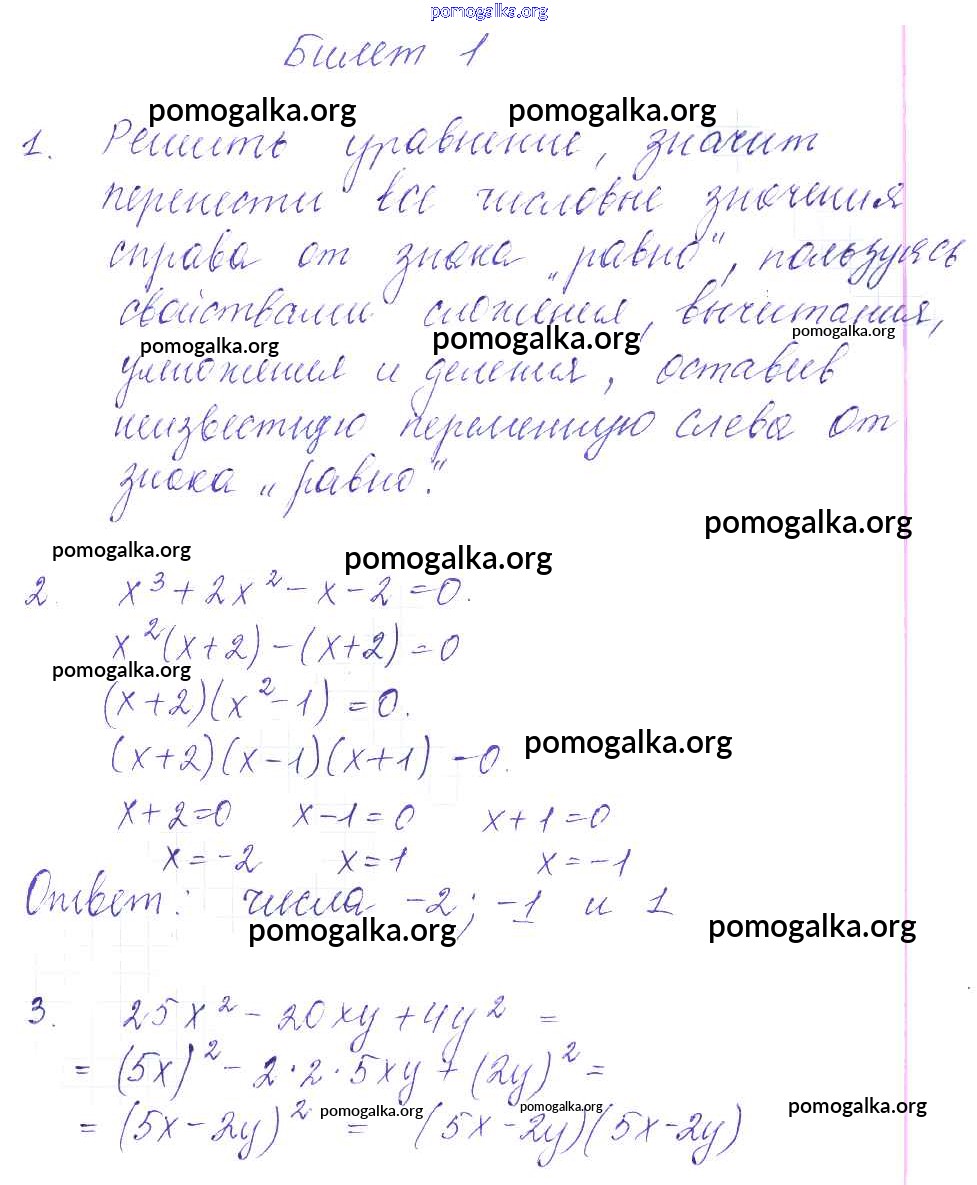 pomogalka.org
Билет 1
pomogalka.org pomogalka.org
1. Решить уравнение, значит
перенести все числовые значения
справа от знака „равно“, пользуясь
свойствами сложения, вычитания,
pomogalka.org pomogalka.org pomogalka.org
умножения и деления, оставив
неизвестную переменную слева от
знака „равно“.
pomogalka.org
pomogalka.org pomogalka.org
2. x³ + 2x² - x - 2 = 0.
x²(x+2) - (x+2) = 0
pomogalka.org
(x+2)(x²-1) = 0.
(x+2)(x-1)(x+1) = 0.
pomogalka.org
x+2=0 x-1=0 x+1=0
x=-2 x=1 x=-1
Ответ: числа -2; -1 и 1
pomogalka.org pomogalka.org
3. 25x² - 20xy + 4y² =
= (5x)² - 2·2·5xy + (2y)² =
pomogalka.org pomogalka.org pomogalka.org
= (5x-2y)² = (5x-2y)(5x-2y)